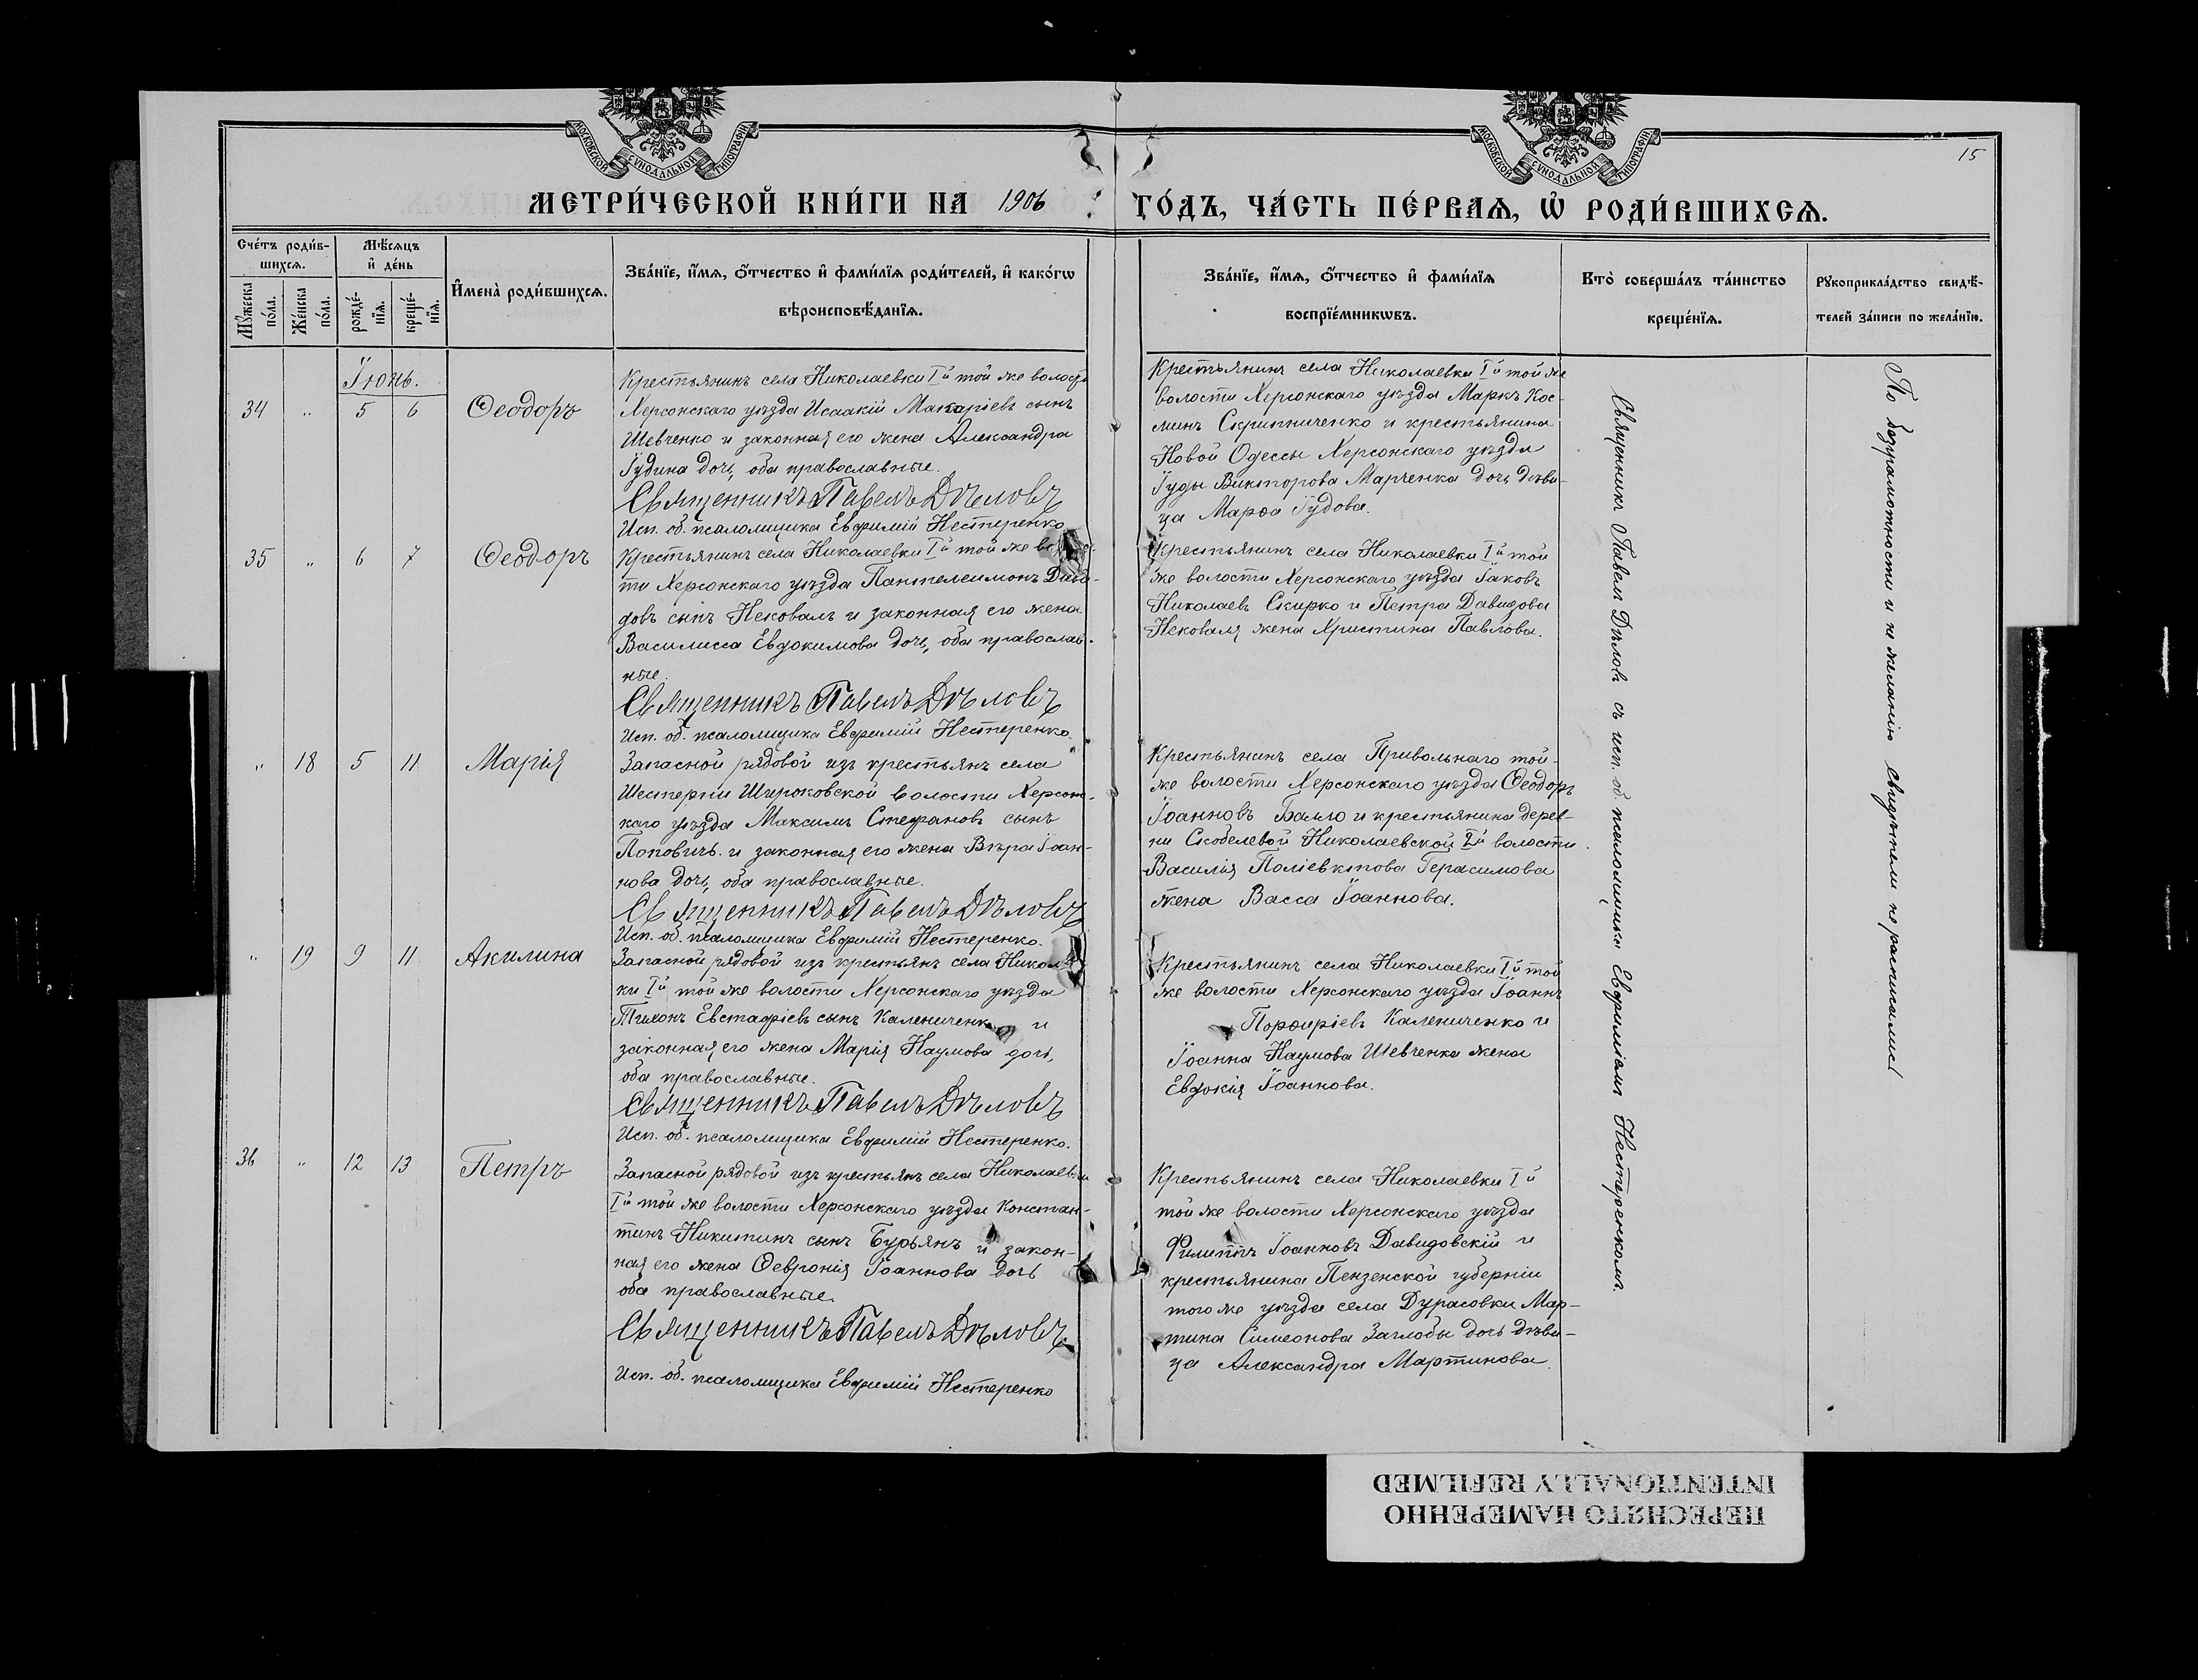 МОСКОВСКОЙ СѴНОДАЛЬНОЙ ТИПОГРАФІИ
МОСКОВСКОЙ СѴНОДАЛЬНОЙ ТИПОГРАФІИ
15
МЕТРИ́ЧЕСКОЙ КНИ́ГИ НА 1906 ГО́ДЪ, ЧА́СТЬ ПЕ́РВАѦ, Ѡ РОДИ́ВШИХСѦ.
Сче́тъ роди́в-
шихсѧ.
Мꙋ́жеска по́ла.
Же́нска по́ла.
Мѣ́сѧцъ
и҆ де́нь
рожде́-
нїѧ.
креще́-
нїѧ.
И҆мена̀ роди́вшихсѧ.
Зва́нїе, и҆́мѧ, ѻ҆́тчество и҆ фами́лїѧ роди́телей, и҆ како́гѡ
вѣроисповѣ́данїѧ.
Зва́нїе, и҆́мѧ, ѻ҆́тчество и҆ фами́лїѧ
воспрїе́мникѡвъ.
Кто̀ соверша́лъ та́инство
креще́нїѧ.
Рꙋкоприкла́дство свидѣ́-
телей за́писи по жела́нїю.
Іюнь.
34 " 5 6 Ѳеодоръ
Крестьянинъ села Николаевки Iй той же волости
Херсонскаго уѣзда Исаакій Макаріевъ сынъ
Шевченко и законная его жена Александра
Іудина дочь, оба православные.
Священникъ Павелъ Дѣловъ
Исп. об. псаломщика Евфимій Нестеренко
Крестьянинъ села Николаевки Iй той же
волости Херсонскаго уѣзда Маркъ Кос-
минъ Скрипниченко и крестьянина
Новой Одессы Херсонскаго уѣзда
Іуды Викторова Марченка дочь дѣви-
ца Марѳа Іудова.
35 " 6 7 Ѳеодоръ
Крестьянинъ села Николаевки Iй той же
ти Херсонскаго уѣзда Пантелеимонъ Дави-
довъ сынъ Нековаль и законная его жена
Василисса Евдокимова дочь, оба православ-
ные.
Священникъ Павелъ Дѣловъ
Исп. об. псаломщика Евфимій Нестеренко.
Крестьянинъ села Николаевки Iй той
же волости Херсонскаго уѣзда Іаковъ
Николаевъ Скирко и Петра Давидова
Нековаля жена Христина Павлова.
" 18 5 11 Марія
Запасной рядовой изъ крестьянъ села
Шестерни Широковской волости Херсонс-
каго уѣзда Максимъ Стефановъ сынъ
Поповичъ и законная его жена Вѣра Іоан-
нова дочь, оба православные.
Священникъ Павелъ Дѣловъ
Исп. об. псаломщика Евфимій Нестеренко.
Крестьянинъ села Привольнаго той-
же волости Херсонскаго уѣзда Ѳеодоръ
Іоанновъ Балло и крестьянина дерев-
ни Скобелевой Николаевской 2й волости
Василія Поліевктова Герасимова
жена Васса Іоаннова.
" 19 9 11 Акилина
Запасной рядовой изъ крестьянъ села
ки Iй той же волости Херсонскаго уѣзда
Тихонъ Евстафіевъ сынъ Калениченко и
законная его жена Марія Наумова дочь,
оба православные.
Священникъ Павелъ Дѣловъ
Исп. об. псаломщика Евфимій Нестеренко.
Крестьянинъ села Николаевки Iй той
же волости Херсонскаго уѣзда Іоаннъ
Порфиріевъ Калениченко и
Іоанна Наумова Шевченка жена
Евдокія Іоаннова.
36 " 12 13 Петръ
Запасной рядовой изъ крестьянъ села Николаевки
Iй той же волости Херсонскаго уѣзда Констан-
тинъ Никитинъ сынъ Бурьянъ и закон-
ная его жена Ѳевронія Іоаннова дочь
оба православные.
Священникъ Павелъ Дѣловъ
Исп. об. псаломщика Евфимій Нестеренко
Крестьянинъ села Николаевки Iй
той же волости Херсонскаго уѣзда
Филиппъ Іоанновъ Давидовскій и
крестьянина Пензенской губерніи
того же уѣзда села Дурасовки Мар-
тина Симеонова Заглобы дочь дѣви-
ца Александра Мартинова.
Священникъ Павелъ Дѣловъ съ исп. об. псаломщика Евфиміемъ Нестеренкомъ.
По безграмотности и не желанію свидѣтели не расписались
ПЕРЕСНЯТО НАМЕРЕННО
INTENTIONALLY REFILMED